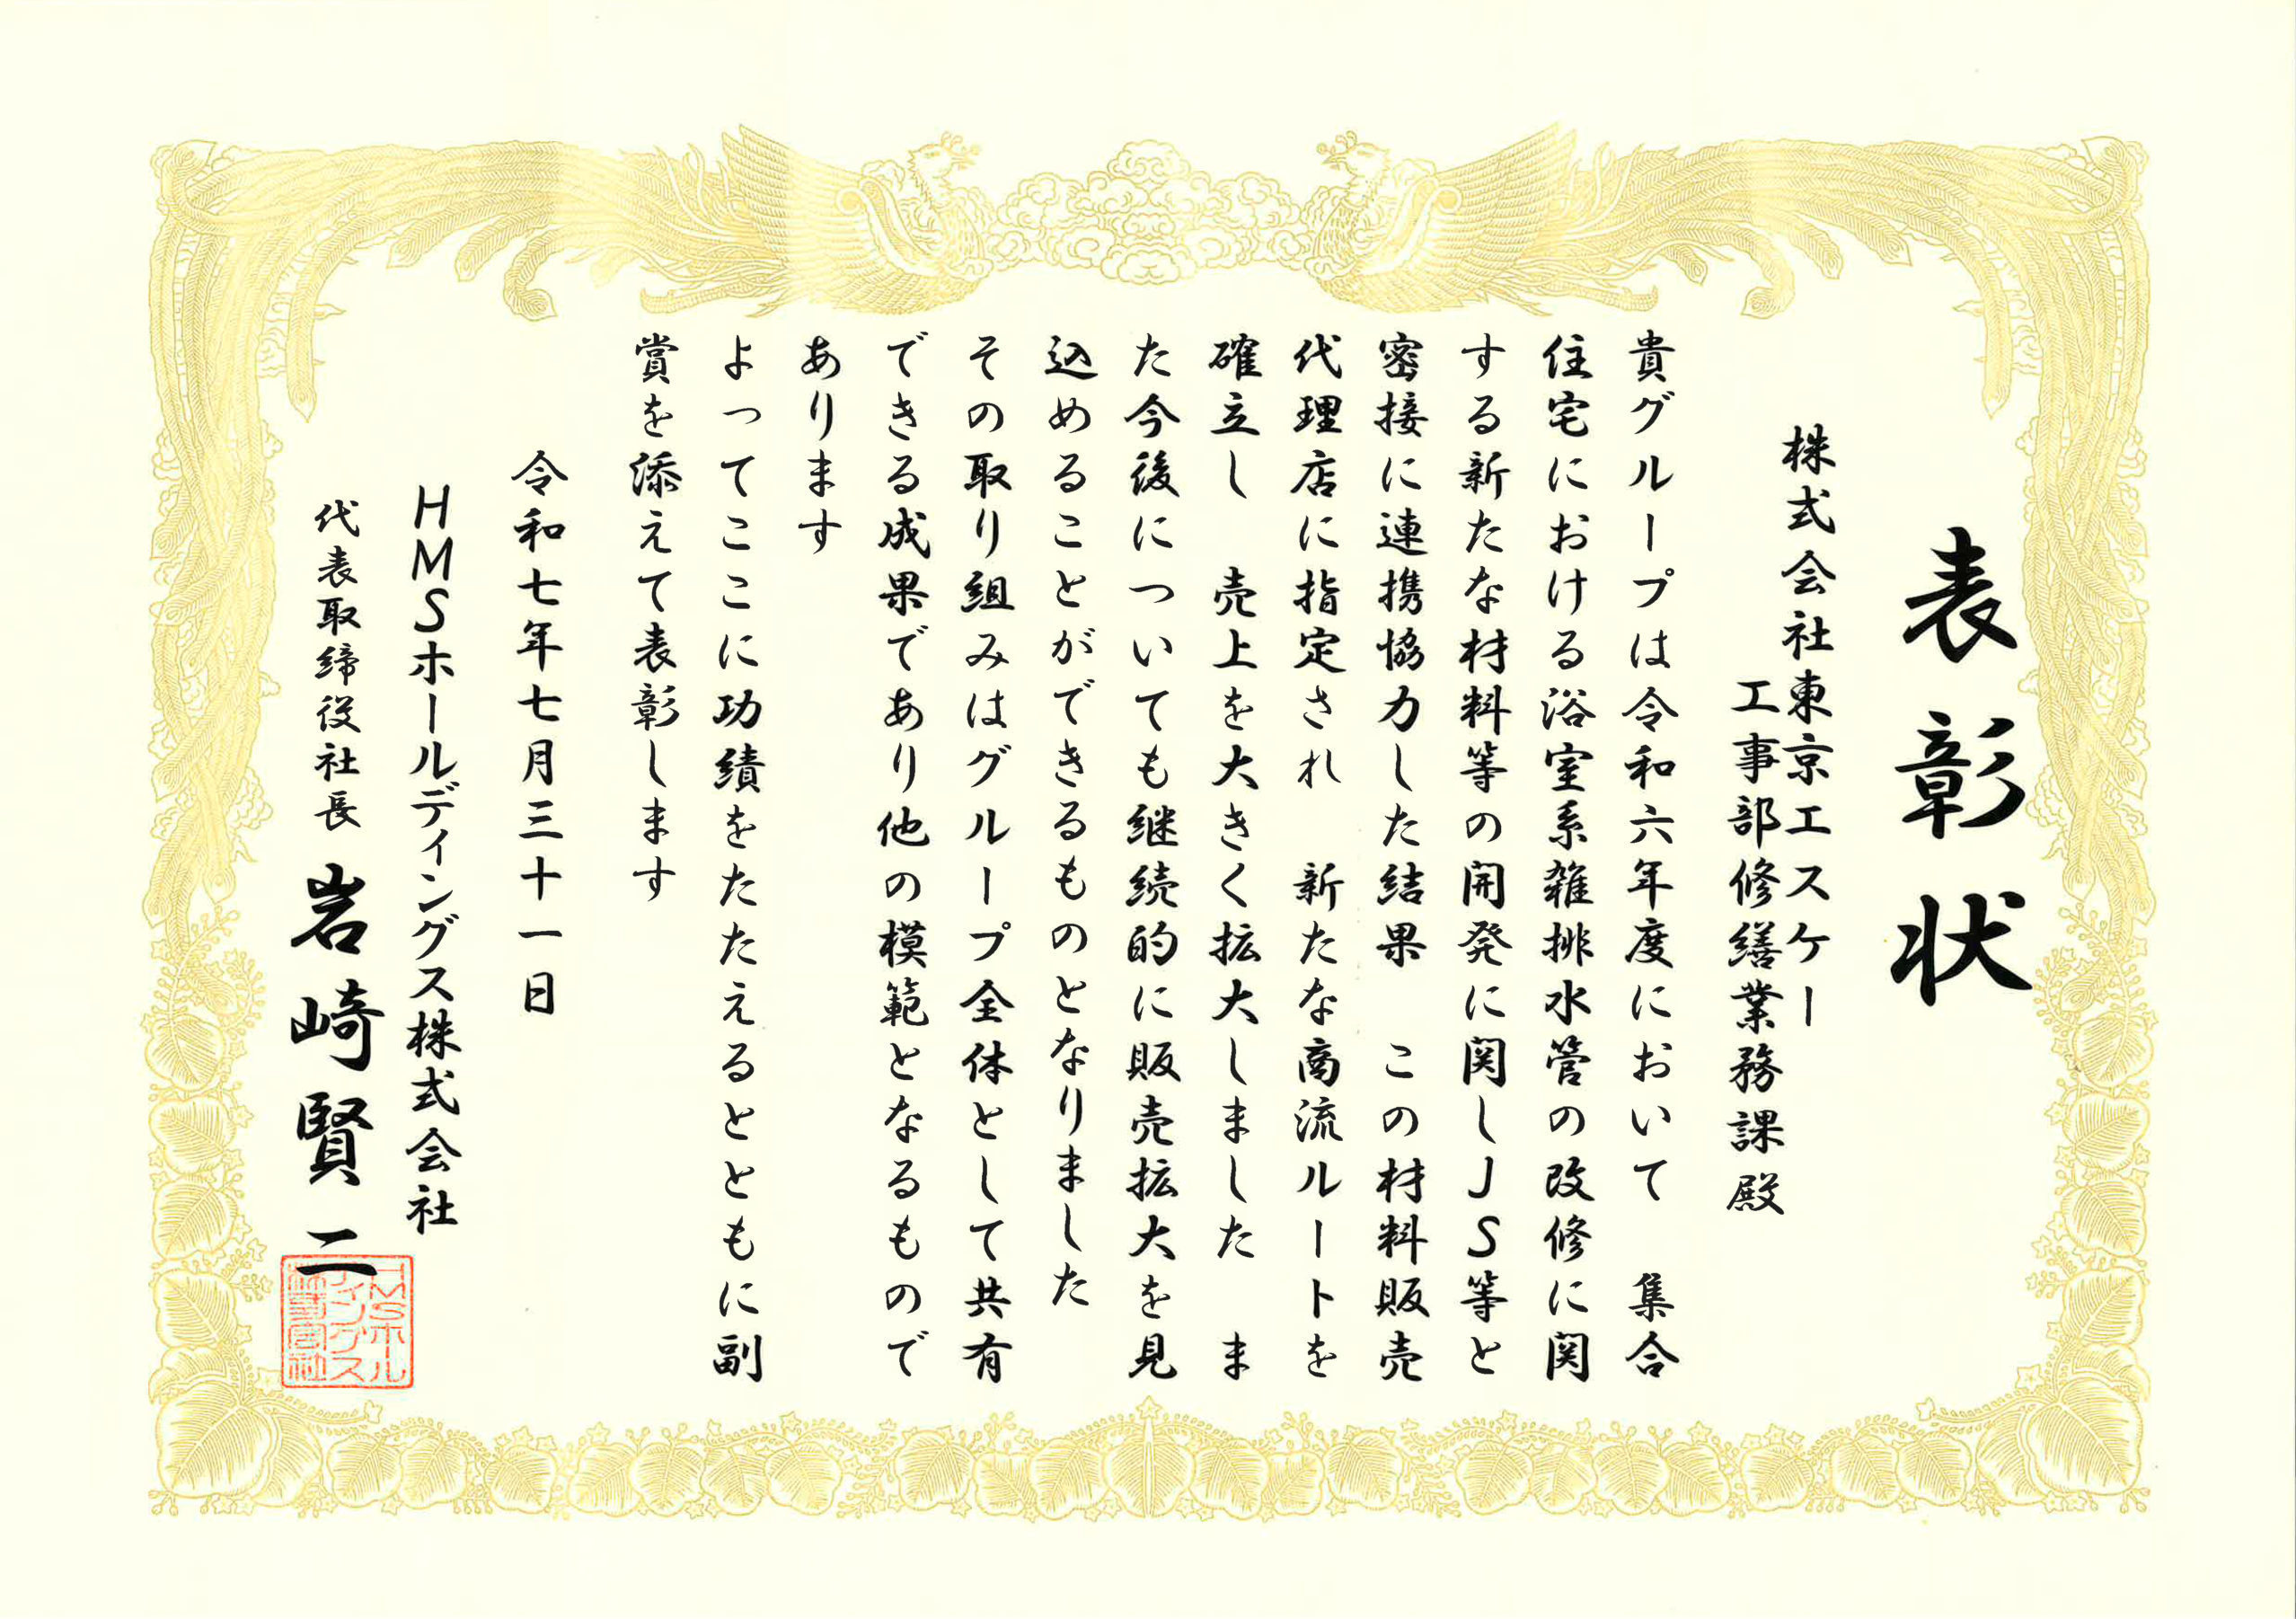 表彰状
株式会社東京エスケー
工事部修繕業務課殿
貴グループは令和六年度において　集合
住宅における浴室系雑排水管の改修に関
する新たな材料等の開発に関しＪＳ等と
密接に連携協力した結果　この材料販売
代理店に指定され　新たな商流ルートを
確立し　売上を大きく拡大しました　ま
た今後についても継続的に販売拡大を見
込めることができるものとなりました
その取り組みはグループ全体として共有
できる成果であり他の模範となるもので
あります
よってここに功績をたたえるとともに副
賞を添えて表彰します
令和七年七月三十一日
ＨＭＳホールディングス株式会社
代表取締役社長　岩崎賢二
HMSホール
ディングス
株式会社